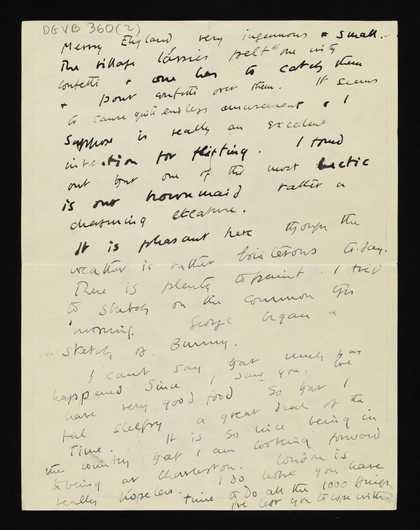 DGVB 360(2)
Merry England very ingenuous & small.
The village lassies pelt one with
confetti & one has to catch them
& pour confetti over them. It seems
to cause quite endless amusement & I
suppose is really an excellent
invention for flirting. I found
out that one of the most hectic
is our housemaid rather a
charming creature.
It is pleasant here though the
weather is rather boisterous today.
There is plenty to paint. I tried
to sketch on the common this
morning. George began a
sketch of Bunny.
I can't say that much has
happened since I saw you. We
have very good food so that I
feel sleepy a great deal of the
time. It is so nice being in
the country that I am looking forward
to being at Charleston. London is
really hopeless. I do hope you have
time to do all the 1000 things
I've got you to cope with